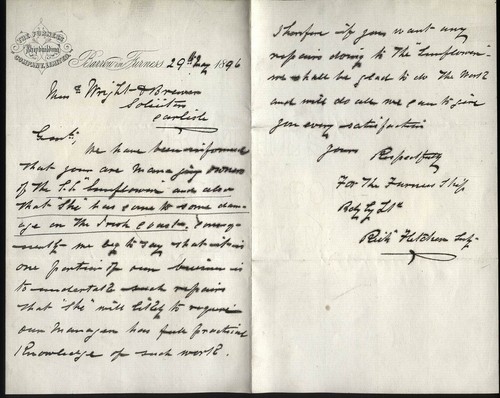 THE FURNESS
Shipbuilding
COMPANY, LIMITED.
Barrow in Furness 29th May 1896
Messrs Wright & Brown
Solicitors
Carlisle
Gents,
We have been informed
that you are managing owners
of the S.S. "Sunflower" and also
that "She" has come to some dam-
age on the Irish Coast.
we beg to say that it is in
one portion of our business is
to undertake such repairs
that "She" will likely to require
our Manager has full practical
Knowledge of such work.
Therefore if you want any
repairs doing to the "Sunflower"
we shall be glad to do the work
and will do all we can to give
you every satisfaction
Yours Respectfully
For The Furness Ship
Bdg Cy Ld
Richd Fletcher